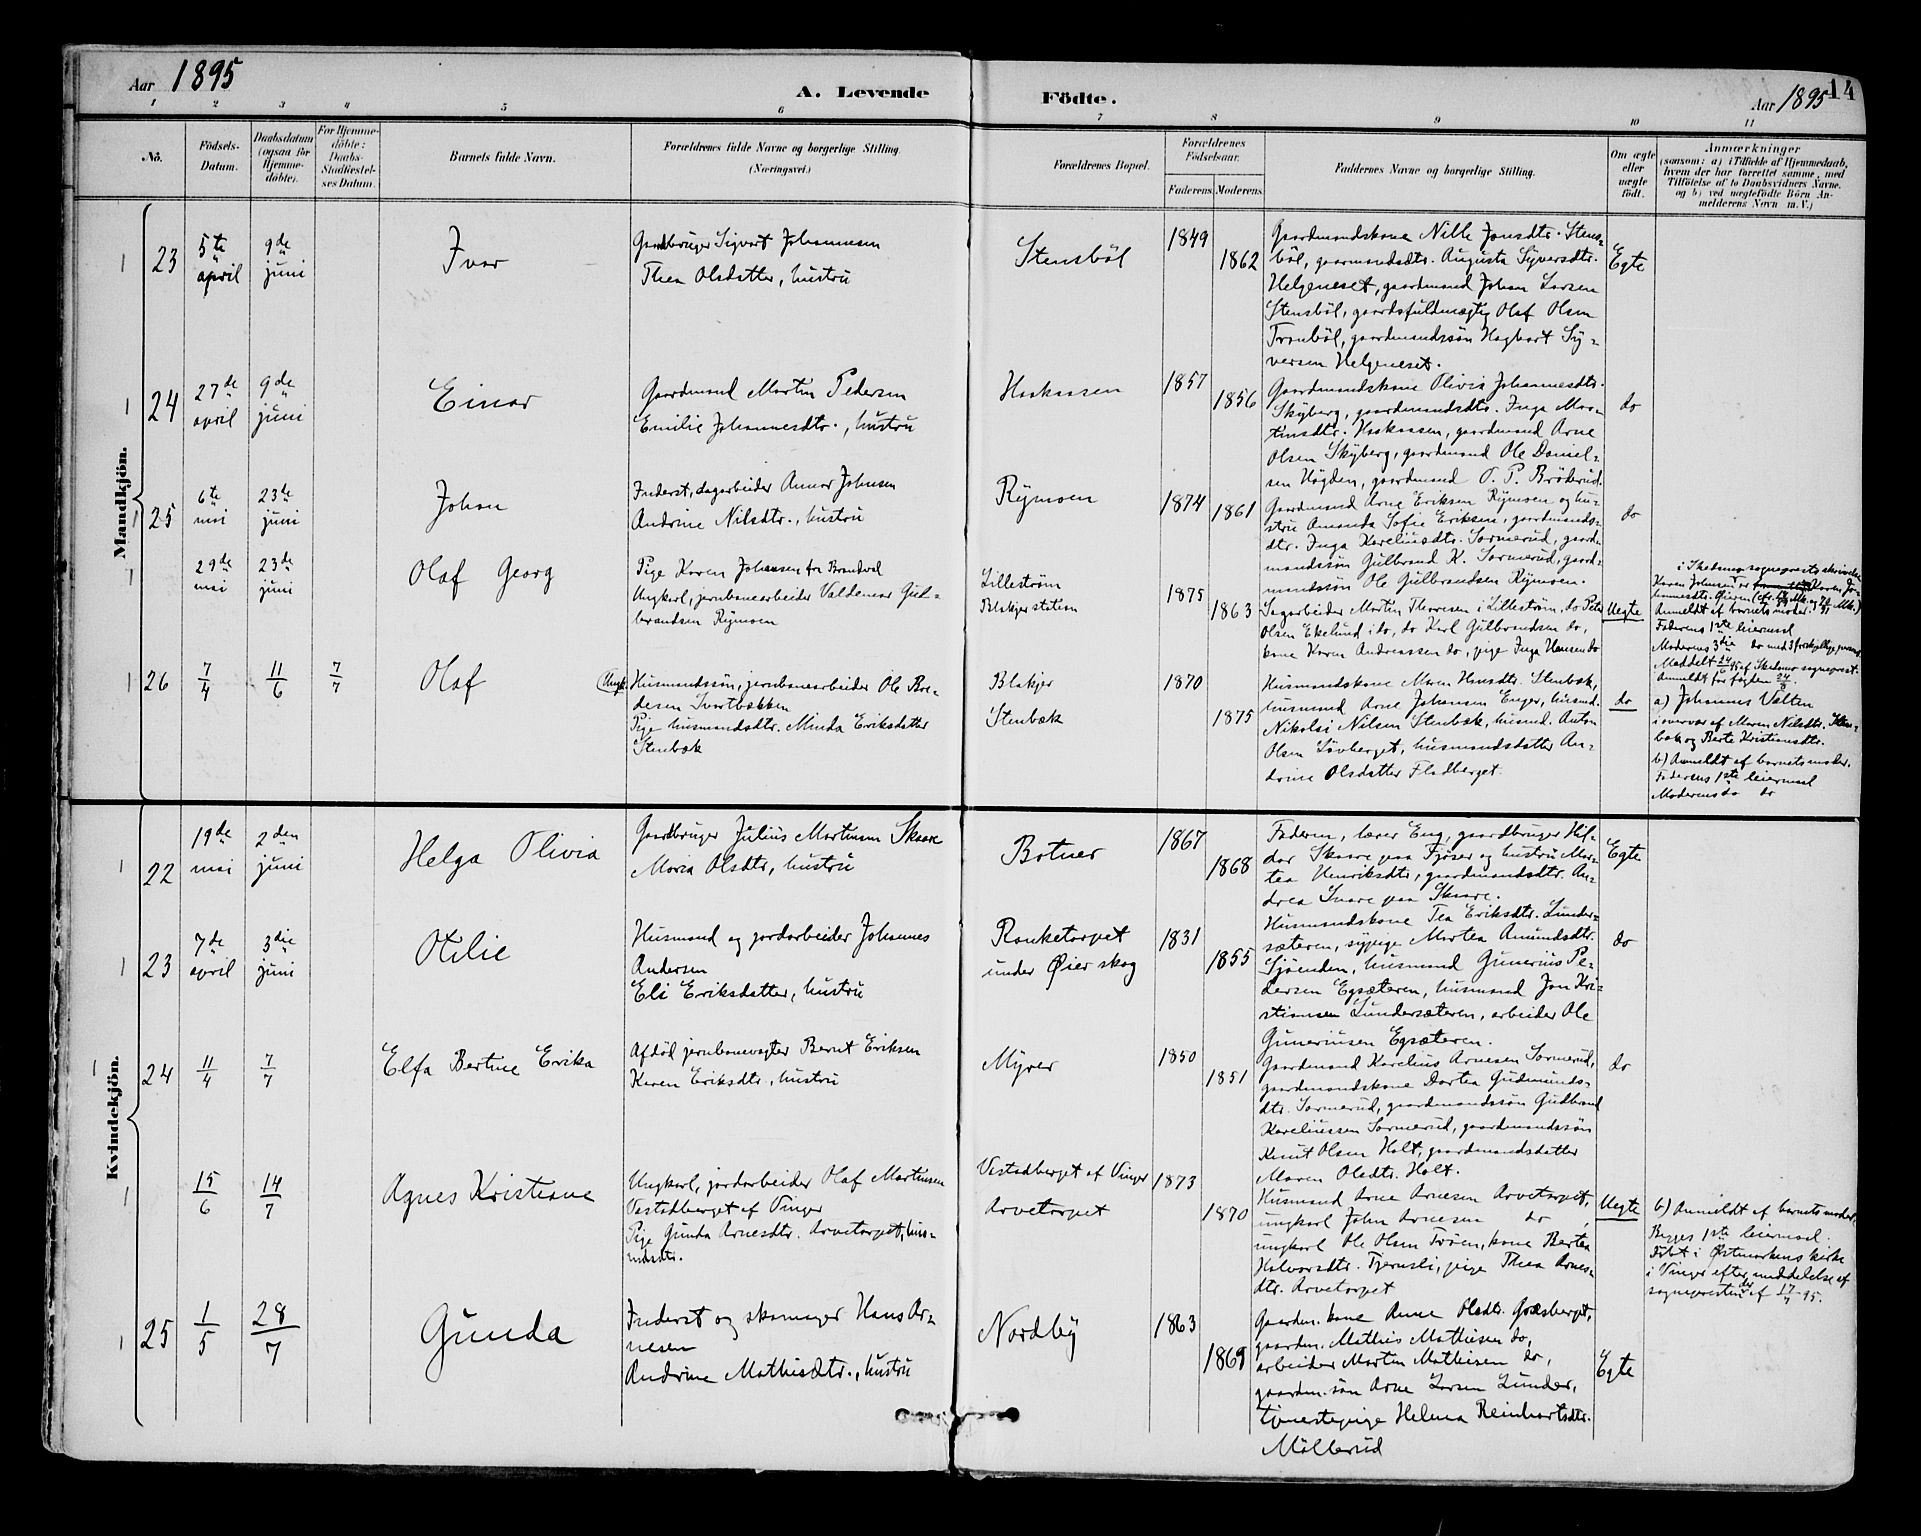 Aar 1895
A. Levende
Födte.
Aar 1895
14
1 2 3 4 5 6 7 8 9 10 11
No.
Födsels-
Datum.
Daabsdatum
(ogsaa for
Hjemme-
döbte).
For Hjemme-
döbte:
Daabs-
Stadfæstel-
ses Datum.
Barnets fulde Navn.
Forældrenes fulde Navne og borgerlige Stilling
(Næringsvei.)
Forældrenes Bopæl.
Forældrenes
Födselsaar.
Faderens. Moderens.
Faddernes Navne og borgerlige Stilling.
Om ægte
eller
uægte
födt.
Anmærkninger
(saasom: a) i Tilfælde af Hjemmedaab,
hvem der har forrettet samme, med
Tilföielse af to Daabsvidners Navne.
og b) ved uægtefödte Börn An-
melderens Navn m. V.)
Mandkjön.
23
5te
april
9de
juni
Ivar
Gaardbruger Sigvart Johannesen
Thea Olsdatter, hustru
Stensböl
1849
1862
Gaardmandskone Nille Jonsdtr. Stens-
böl, gaarmandsdtr. Augusta Syversdtr.
Helgeneset, gaardmand Johan Larsen
Stensböl, gaardsfuldmægtig Olaf Olsen
Tronböl, gaardmandssön Hagbart Sy-
versen Helgeneset.
Egte
24
27de
april
9de
juni
Einar
Gaardmand Martin Pedersen
Emilie Johannesdtr., hustru
Haskassen
1857
1856
Gaardmandskone Olivia Johannesdtr.
Skyberg, gaardmandsdtr. Inga Mar-
tinsdtr. Haskassen, gaardmand Arne
Olsen Skyberg, gaardmand Ole Daniel-
sen Högden, gaardmand O. P. Bröderud.
do
25
6te
mai
23de
juni
Johan
Inderst, dagarbeider Annar Johnsen
Andrine Nilsdtr., hustru
Rymoen
1874
1861
Gaardmand Arne Eriksen Rymoen og hu-
stru Amanda Sofie Eriksen, gaardmands-
dtr. Inga Kareliusdtr. Sormerud, gaard-
mandssön Gulbrand K. Sormerud, gaard-
mandssön Ole Gulbrandsen Rymoen.
do
29de
mai
23de
juni
Olaf Georg
Pige Karen Johansen fra Brandval
Ungkarl, jernbanearbeider Valdemar Gul-
brandsen Rymoen
Lilleström
Blakjer station
1875
1863
Sagarbeider Martin Thoresen i Lilleström, do Peter
Olsen Ekelund i do, do Karl Gulbrandsen do,
kone Karen Andreassen do, pige Inga Hansen do
Uegte
i Skedsmo sogneprests skrivelse
Anmeldt af barnets moder.
Faderens 1ste leiermaal
Moderens 3die do med 3 forskjellige
Meddelt 24/ 95 af Skedsmo sogneprest.
Anmeldt for fogden 24/
26
7/4
11/6
7/7
Olaf
Ungk. Husmandssön, jernbanearbeider Ole Pe-
dersen Svartbækken
Pige husmandsdtr. Minda Eriksdatter
Stenbæk
Blakjer
Stenbæk
1870
1875
Husmandskone Maren Hansdtr. Stenbæk,
husmand Arne Johansen Enger, husmd.
Nikolai Nilsen Stenbæk, husmd. Anton
Olsen Lövberget, husmandsdatter An-
drine Olsdatter Fladberget.
do
a) Johannes Valten
i overvær af Maren Nilsdtr. Sten-
bæk og Berte Kristiansdtr.
b) Anmeldt af barnets moder.
Faderens 1ste leiermaal
Moderens do do
Kvindekjön.
22
19de
mai
2den
juni
Helga Olivia
Gaardbruger Julius Martinsen Skaare
Maria Olsdtr., hustru
Botner
1867
1868
Faderen, lærer Eng, gaardbruger Hil-
dar Skaare paa Fjöser og hustru Mar-
tea Henriksdtr, gaardmandsdtr. An-
drea Snare paa Skaare.
Egte
23
7de
april
3die
juni
Otilie
Husmand og jordarbeider Johannes
Andersen
Eli Eriksdatter, hustru
Ranketorpet
under Øier skog
1831
1855
Husmandskone Tea Eriksdtr. Lunder-
sæteren, sypige Martea Amundsdtr.
Sjöenden, husmand Gunerius Pe-
dersen Egsæteren, husmand Jon Kri-
stiansen Lundersæteren, arbeider Ole
Guneriusen Egsæteren.
do
24
11/4
7/7
Elfa Bertine Erika
Afdöd jernbanevogter Bernt Eriksen
Karen Eriksdtr., hustru
Myrer
1850
1851
Gaardmand Karelius Arnesen Sormerud,
gaardmandskone Dortea Gudmunds-
dtr. Sormerud, gaardmandssön Gudbrand
Kareliussen Sormerud, gaardmandssön
Knut Olsen Holt, gaardmandsdatter
Maren Olsdtr. Holt.
do
15/6
14/7
Agnes Kristiane
Ungkarl, jordarbeider Olaf Martinsen
Vestadberget af Vinger
Pige Gunda Arnesdtr. Arvetorpet, hus-
mdsdtr.
Vestadberget af Vinger
Arvetorpet
1873
1870
Husmand Arne Arnesen Arvetorpet,
ungkarl John Arnesen do,
ungkarl Ole Olsen Tröen, kone Bertea
Halvorsdtr. Tjernsli, pige Thea Arnes-
dtr. Arvetorpet
Uegte
b) Anmeldt af barnets moder.
Begges 1ste leiermaal.
Döbt i Østmarkens kirke
i Vinger efter meddelelse af
sognepresten der af 17/7 95.
25
1/5
28/7
Gunda
Inderst og skomager Hans Ar-
nesen
Andrine Mathisdtr., hustru
Nordby
1863
1869
Gaardm. kone Anne Olsdtr. Græsberget,
gaardm. Mathis Mathisen do,
arbeider Martin Mathisen do,
gaardm. sön Arne Larsen Lunder,
tjenestepige Helma Reinhartsdtr.
Möllerud
Egte